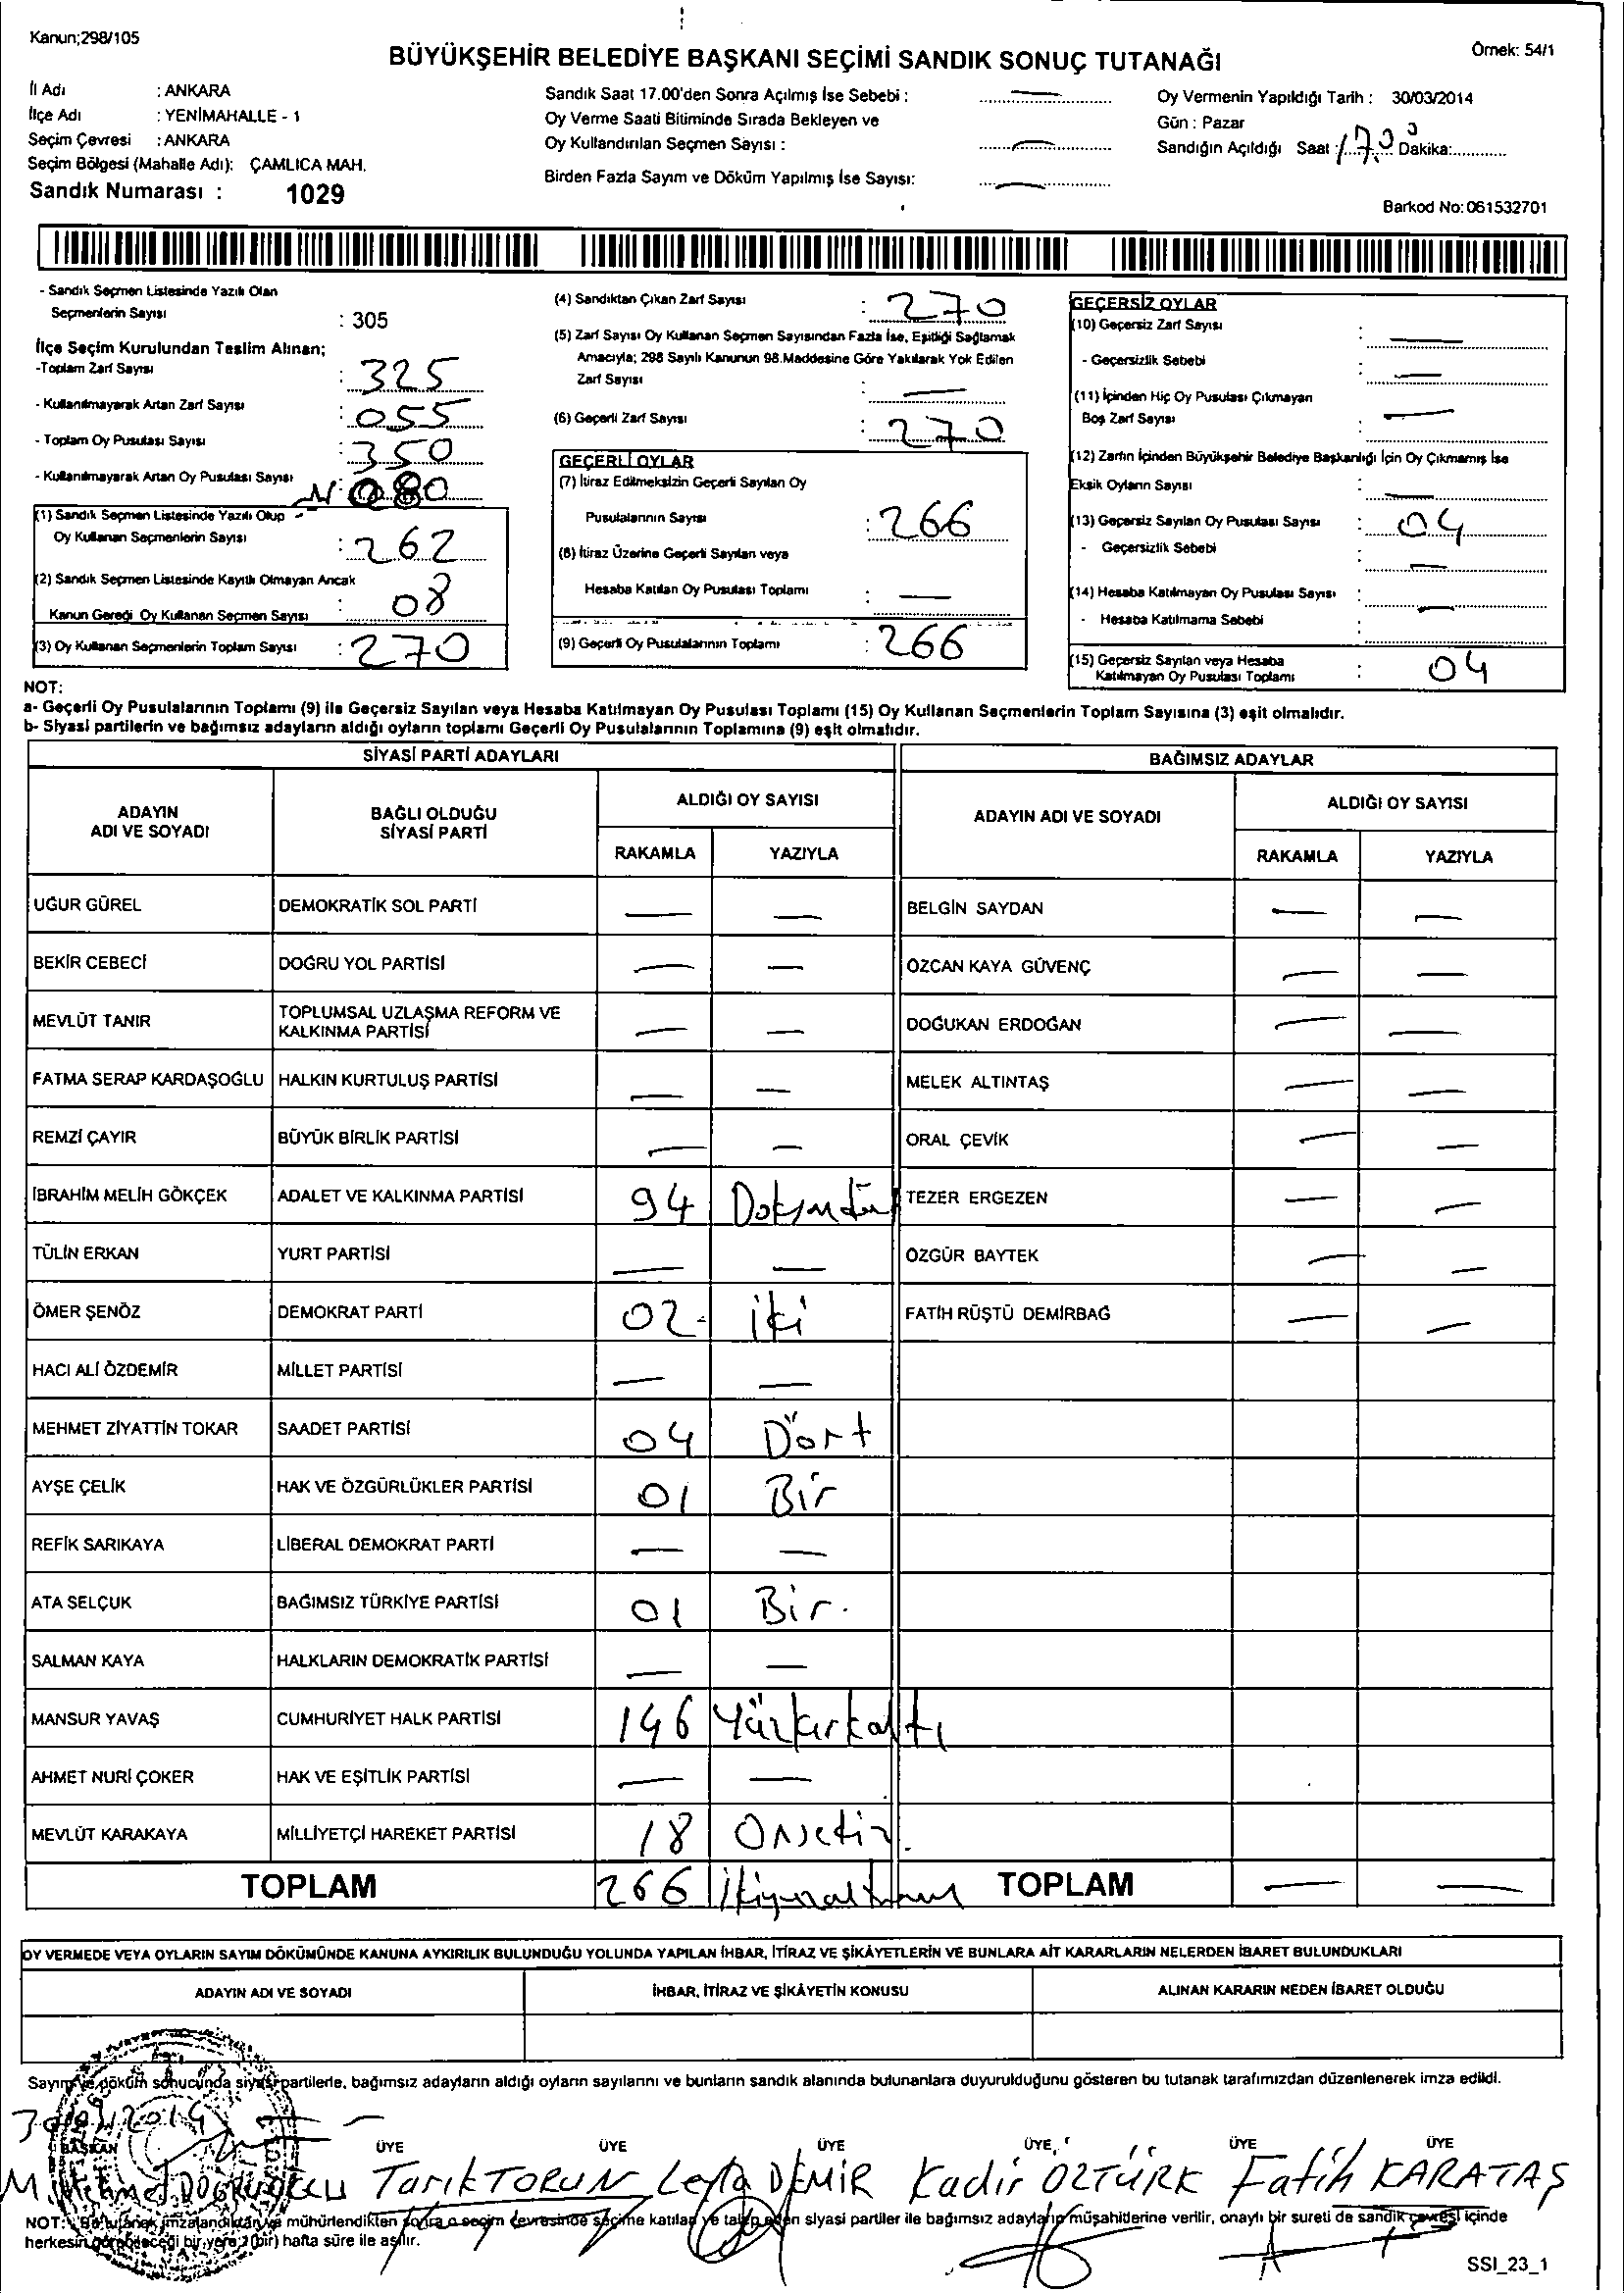 Kanun;298/105
Örnek: 54/1
BÜYÜKŞEHİR BELEDİYE BAŞKANI SEÇİMİ SANDIK SONUÇ TUTANAĞI
İl Adı : ANKARA
İlçe Adı : YENİMAHALLE - 1
Seçim Çevresi : ANKARA
Seçim Bölgesi (Mahalle Adı): ÇAMLICA MAH.
Sandık Numarası : 1029
Sandık Saat 17.00'den Sonra Açılmış İse Sebebi : —
Oy Verme Saati Bitiminde Sırada Bekleyen ve
Oy Kullandırılan Seçmen Sayısı : —
Birden Fazla Sayım ve Döküm Yapılmış İse Sayısı: —
Oy Vermenin Yapıldığı Tarih : 30/03/2014
Gün : Pazar
Sandığın Açıldığı Saat : 17.00 Dakika:............
Barkod No: 061532701
- Sandık Seçmen Listesinde Yazılı Olan
Seçmenlerin Sayısı : 305
İlçe Seçim Kurulundan Teslim Alınan;
-Toplam Zarf Sayısı : 325
- Kullanılmayarak Artan Zarf Sayısı : 055
- Toplam Oy Pusulası Sayısı : 350
- Kullanılmayarak Artan Oy Pusulası Sayısı : 080
(1) Sandık Seçmen Listesinde Yazılı Olup
Oy Kullanan Seçmenlerin Sayısı : 262
(2) Sandık Seçmen Listesinde Kayıtlı Olmayan Ancak
Kanun Gereği Oy Kullanan Seçmen Sayısı : 08
(3) Oy Kullanan Seçmenlerin Toplam Sayısı : 270
(4) Sandıktan Çıkan Zarf Sayısı : 270
(5) Zarf Sayısı Oy Kullanan Seçmen Sayısından Fazla İse, Eşitliği Sağlamak
Amacıyla; 298 Sayılı Kanunun 98.Maddesine Göre Yakılarak Yok Edilen
Zarf Sayısı : —
(6) Geçerli Zarf Sayısı : 270
GEÇERLİ OYLAR
(7) İtiraz Edilmeksizin Geçerli Sayılan Oy
Pusulalarının Sayısı : 266
(8) İtiraz Üzerine Geçerli Sayılan veya
Hesaba Katılan Oy Pusulası Toplamı : —
(9) Geçerli Oy Pusulalarının Toplamı : 266
GEÇERSİZ OYLAR
(10) Geçersiz Zarf Sayısı : —
- Geçersizlik Sebebi : —
(11) İçinden Hiç Oy Pusulası Çıkmayan
Boş Zarf Sayısı : —
(12) Zarfın İçinden Büyükşehir Belediye Başkanlığı İçin Oy Çıkmamış İse
Eksik Oyların Sayısı : —
(13) Geçersiz Sayılan Oy Pusulası Sayısı : 04
- Geçersizlik Sebebi : —
(14) Hesaba Katılmayan Oy Pusulası Sayısı : —
- Hesaba Katılmama Sebebi :
(15) Geçersiz Sayılan veya Hesaba
Katılmayan Oy Pusulası Toplamı : 04
NOT:
a- Geçerli Oy Pusulalarının Toplamı (9) ile Geçersiz Sayılan veya Hesaba Katılmayan Oy Pusulası Toplamı (15) Oy Kullanan Seçmenlerin Toplam Sayısına (3) eşit olmalıdır.
b- Siyasi partilerin ve bağımsız adayların aldığı oyların toplamı Geçerli Oy Pusulalarının Toplamına (9) eşit olmalıdır.
SİYASİ PARTİ ADAYLARI BAĞIMSIZ ADAYLAR
ADAYIN ADI VE SOYADI BAĞLI OLDUĞU SİYASİ PARTİ ALDIĞI OY SAYISI ADAYIN ADI VE SOYADI ALDIĞI OY SAYISI
RAKAMLA YAZIYLA RAKAMLA YAZIYLA
UĞUR GÜREL DEMOKRATİK SOL PARTİ — — BELGİN SAYDAN — —
BEKİR CEBECİ DOĞRU YOL PARTİSİ — — ÖZCAN KAYA GÜVENÇ — —
MEVLÜT TANIR TOPLUMSAL UZLAŞMA REFORM VE KALKINMA PARTİSİ — — DOĞUKAN ERDOĞAN — —
FATMA SERAP KARDAŞOĞLU HALKIN KURTULUŞ PARTİSİ — — MELEK ALTINTAŞ — —
REMZİ ÇAYIR BÜYÜK BİRLİK PARTİSİ — — ORAL ÇEVİK — —
İBRAHİM MELİH GÖKÇEK ADALET VE KALKINMA PARTİSİ 94 TEZER ERGEZEN — —
TÜLİN ERKAN YURT PARTİSİ — — ÖZGÜR BAYTEK — —
ÖMER ŞENÖZ DEMOKRAT PARTİ 02 iki FATİH RÜŞTÜ DEMİRBAĞ — —
HACI ALİ ÖZDEMİR MİLLET PARTİSİ — —
MEHMET ZİYATTİN TOKAR SAADET PARTİSİ 04 Dört
AYŞE ÇELİK HAK VE ÖZGÜRLÜKLER PARTİSİ 01 Bir
REFİK SARIKAYA LİBERAL DEMOKRAT PARTİ — —
ATA SELÇUK BAĞIMSIZ TÜRKİYE PARTİSİ 01 Bir.
SALMAN KAYA HALKLARIN DEMOKRATİK PARTİSİ — —
MANSUR YAVAŞ CUMHURİYET HALK PARTİSİ 146 Yüzkırkaltı
AHMET NURİ ÇOKER HAK VE EŞİTLİK PARTİSİ — —
MEVLÜT KARAKAYA MİLLİYETÇİ HAREKET PARTİSİ 18 Onsekiz
TOPLAM 266 TOPLAM — —
OY VERMEDE VEYA OYLARIN SAYIM DÖKÜMÜNDE KANUNA AYKIRILIK BULUNDUĞU YOLUNDA YAPILAN İHBAR, İTİRAZ VE ŞİKÂYETLERİN VE BUNLARA AİT KARARLARIN NELERDEN İBARET BULUNDUKLARI
ADAYIN ADI VE SOYADI İHBAR, İTİRAZ VE ŞİKÂYETİN KONUSU ALINAN KARARIN NEDEN İBARET OLDUĞU
Sayım ve döküm sonucunda siyasi partilerle, bağımsız adayların aldığı oyların sayılarını ve bunların sandık alanında bulunanlara duyurulduğunu gösteren bu tutanak tarafımızdan düzenlenerek imza edildi.
30/03/2014
BAŞKAN ÜYE ÜYE ÜYE ÜYE ÜYE ÜYE
Tarık TORUN Leyla DEMİR Kadir ÖZTÜRK Fatih KARATAŞ
NOT: Bu tutanak imzalandıktan ve mühürlendikten sonra o seçim çevresinde seçime katılan ve talep eden siyasi partiler ile bağımsız adayların müşahitlerine verilir, onaylı bir sureti de sandık çevresi içinde
herkesin görebileceği bir yere 7 (bir) hafta süre ile asılır.
SSI_23_1